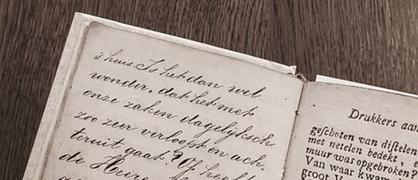 's huis Is het dan wel
wonder, dat het met
onze zaken dagelijksch
zoo zeer verloopt en ach-
teruit gaat?
de Heere
Drukkers aan
geschoten van distelen
met netelen bedekt,
muur was opgebroken
Van waar kwam
groot